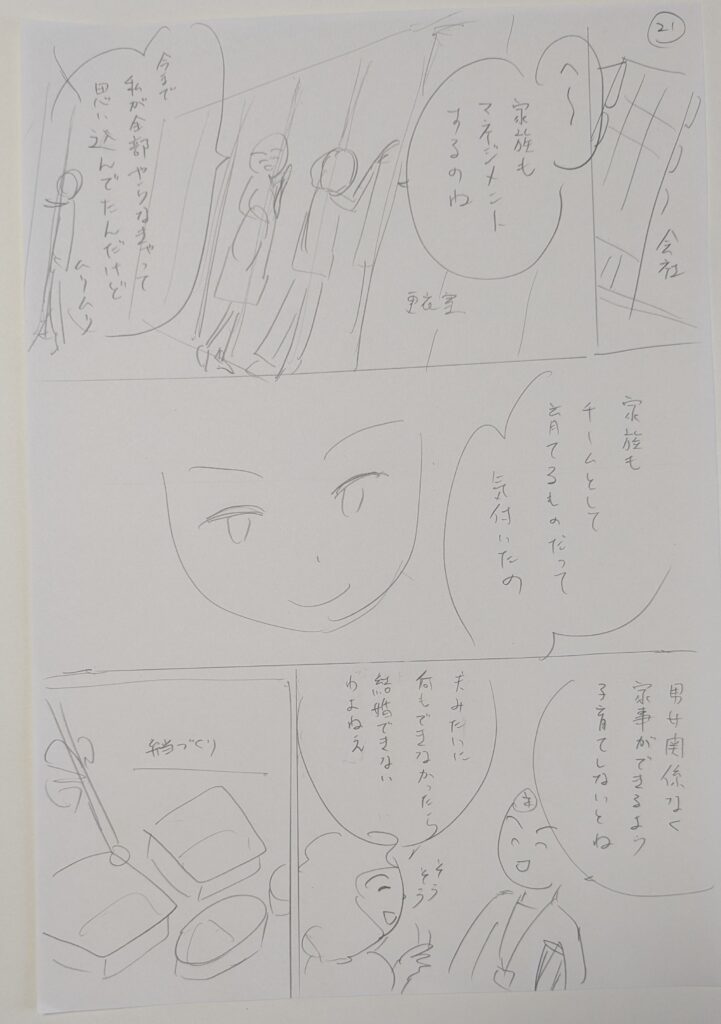 21
会社
へ〜
家族も
マネジメント
するのね
更衣室
今まで
私が全部やらなきゃって
思い込んでたんだけど
ムリムリ
家族も
チームとして
育てるものだって
気付いたの
男女関係なく
家事ができるよう
子育てしないとね
夫みたいに
何もできなかったら
結婚できない
わよねぇ
そう
そう
弁当づくり